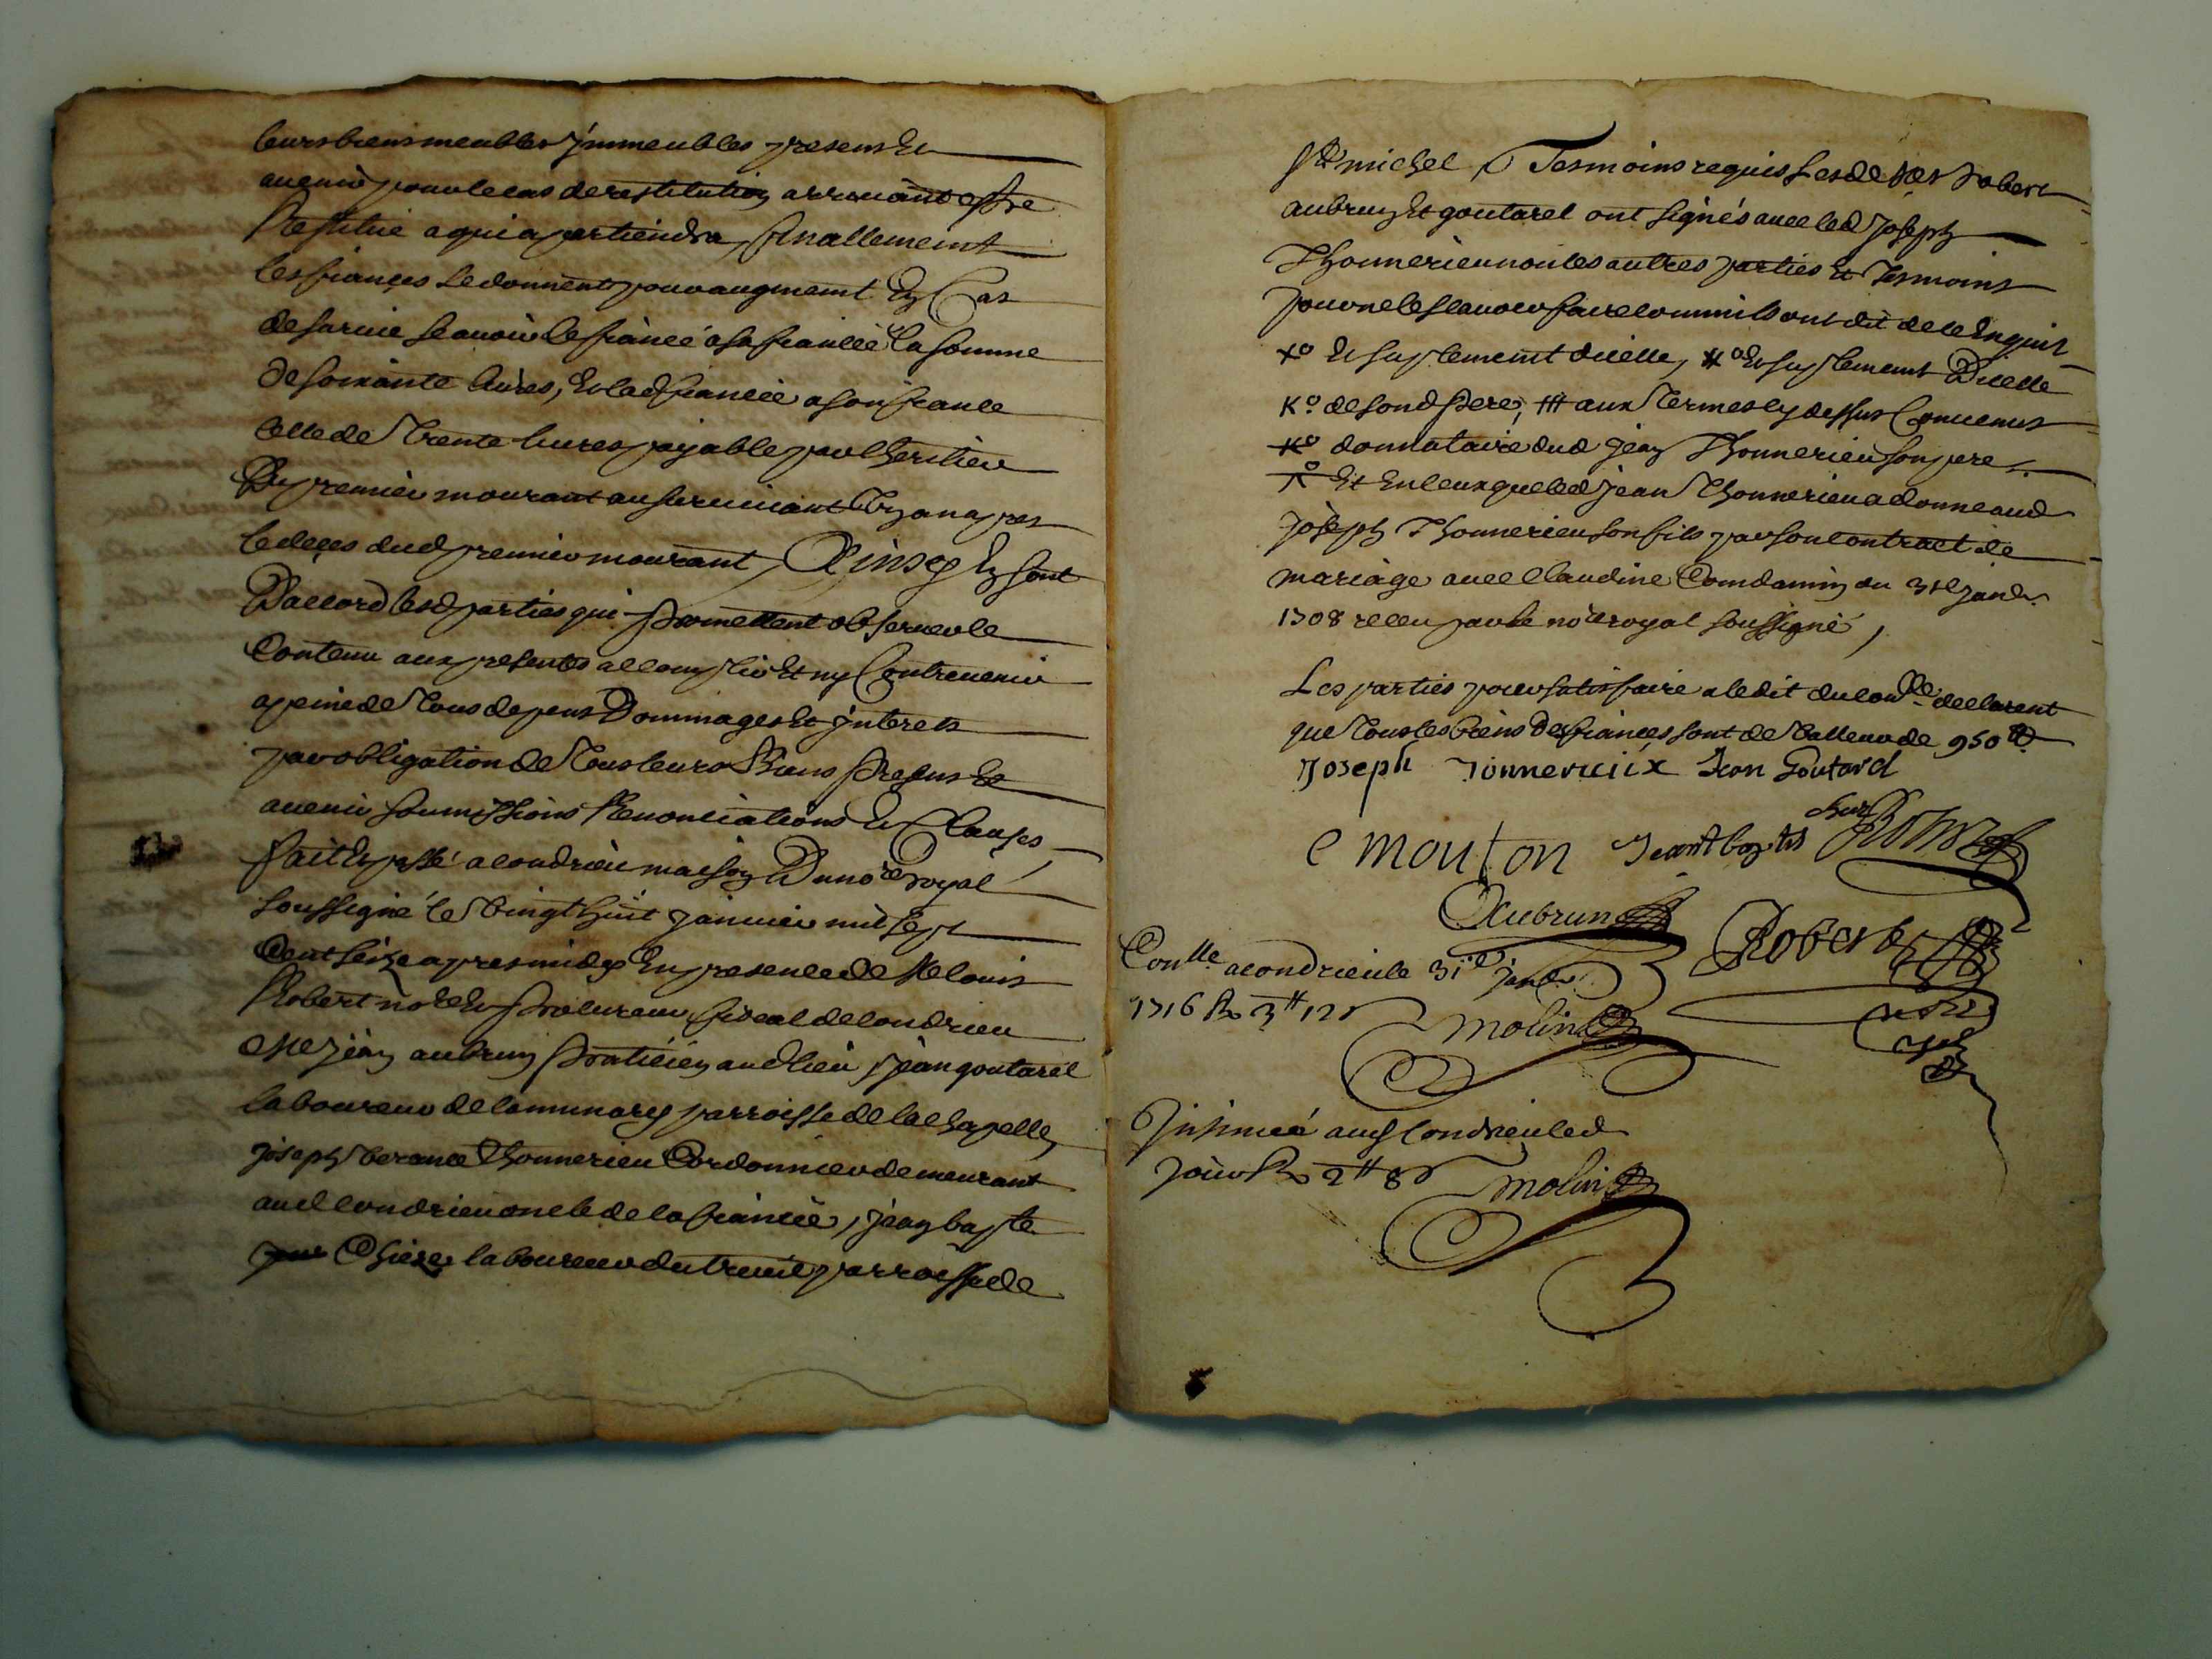 leurs biens meubles jmmeubles presens Et
auenir pour le cas de restitution arriuant estre
Restitué a qui apartiendra, finallement
les fiancés se donnent pour augment En Cas
de suruie scauoir le fiancé a sa fiancée la somme
de soixante liures, Et lad fiancée a son fiancé
Celle de Trente liures payable par lheritier
Du premier mourant au suruiuant Vn an apres
le deces dud premier mourant, Ainsy En sont
D'accord lesd parties qui promettent obseruer le
Contenu aux presentes accomplir Et ny Contreuenir
a peine de Tous depens Dommages Et jnterets
par obligation de Tous leurs Biens Presens Et
auenir soumissions Renonciations Et Clauses,
fait Et passé a condrieu maison Du nore royal
soussigné le Vingt huit januier mil sept
Cent seize apres midy En presence de Me louis
Robert nore Et Procureur fiscal de Condrieu
Me jean aubrun Praticien aud lieu, jean goutarel
laboureur de parroisse de la Chapelle,
joseph Thonnerieu Cordonnier demeurant
aud Condrieu oncle de la fiancée, jean bapte
laboureur du treuil parroisse de
St michel, Tesmoins requis Lesd srs Robert
aubrun Et goutarel ont signés auec led joseph
Thonnerieu non les autres parties Et Tesmoins
pour ne le scauoir faire comme ils ont dit de ce Enquis
Xo Et suplement dicelle, Xo Et suplement Dicelle
Ko de sond Pere, ttt aux Termes cy dessus Conuenus
Ko donnataire dud jean Thonnerieu son pere
Et En ceux que led jean Thonnerieu a donné aud
joseph Thonnerieu son fils par son contract de
mariage auec Claudine Comdamin du 31e janer
1708 receu par le nore royal soussigné,
Les parties pour satisfaire a ledit du conlle declarent
que Tous les biens Des fiances sont de Valleur de 950 lt
Joseph Tonnerieux Jean Goutard
C mouton Jean baptis
Aubrun Robert
Conlle a condrieu le 31e janer
1716 R 3tt 12s
Molin
Jnsinué aud Condrieu led
jour R 2tt 8s Molin